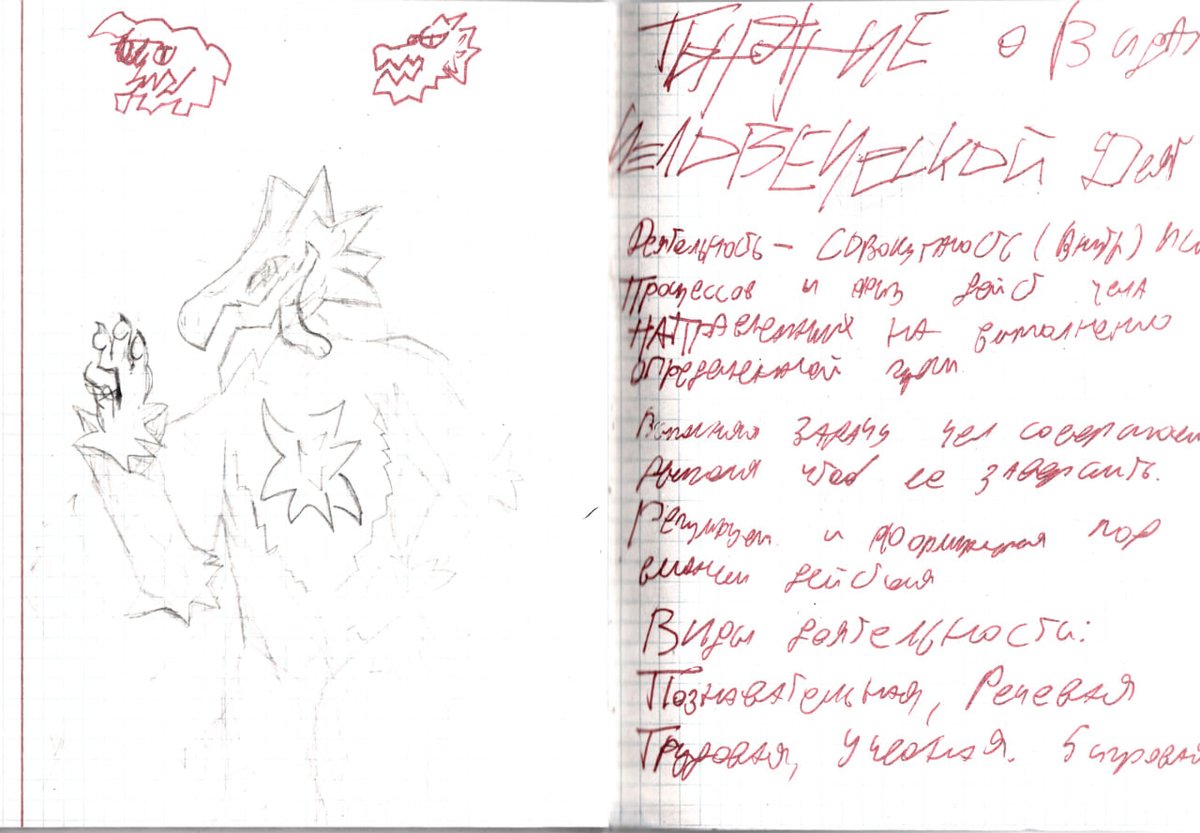 о Видах
ЧЕЛОВЕЧЕСКОЙ Деят
Деятельность – совокупность (Внутр) пси
Процессов и физ дейст чела
НАПРАВленных на выполнению
определенной цели.
Выполняя ЗАДАчу чел совершает
чтоб ее завершить.
Регулирует и формируется под
влиянием действия
Виды деятельности:
Познавательная, Речевая
Трудовая, Учебная. Игровая